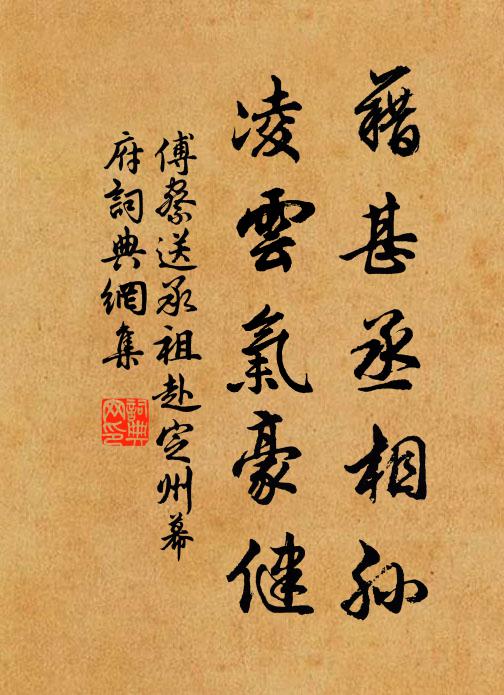 藉甚丞相孫
凌雲氣豪健
傅察送承祖赴定州幕
府詞典網集
詞典網印